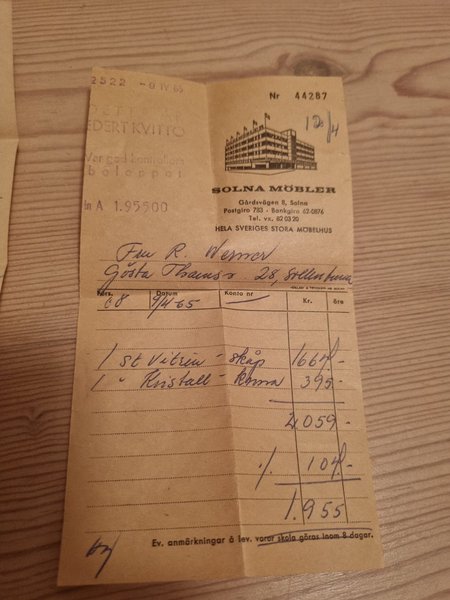 2522 - 9 IV 65
Nr 44287
EDERT KVITTO
Var god kontrollera
beloppet
A 1.95500
SOLNA MÖBLER
Gårdsvägen 8, Solna
Postgiro 783 - Bankgiro 62-0876
Tel. vx. 82 03 20
HELA SVERIGES STORA MÖBELHUS
Fru R. Werner
Gösta 28, Sollentuna
Förs. 68 Datum 9/4-65 Konto nr Kr. öre
1 st Vitrin-skåp 1664.-
1 " Kristall-krona 395.-
2059.-
104.-
1.955
Ev. anmärkningar å lev. varor skola göras inom 8 dagar.